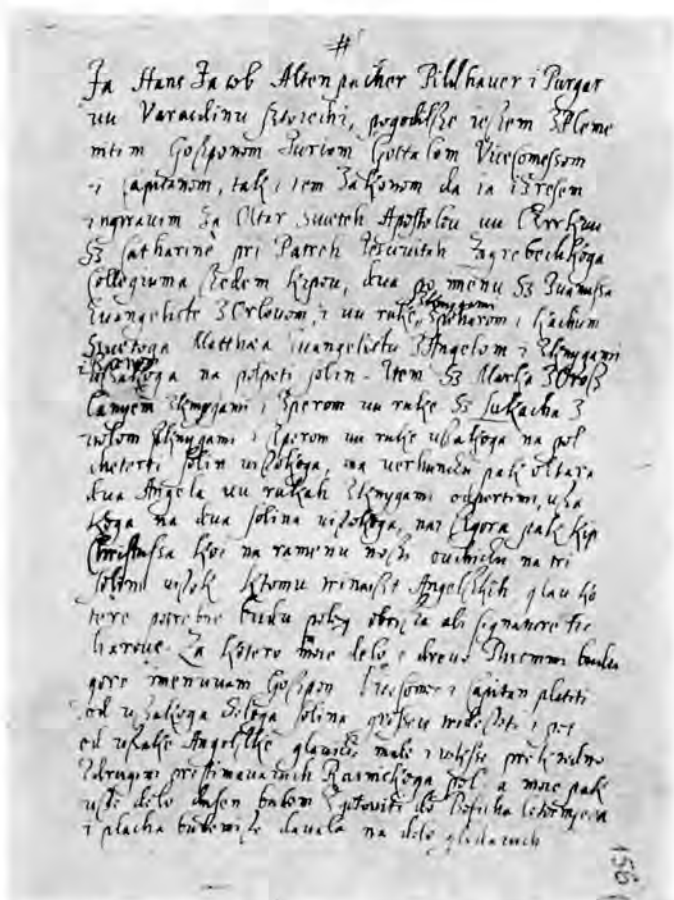 #
Ja Hans Jacob Altenpacher Pildhauer i Purgar
vu Varasdinu stoiechi, pogodilsze ieszem Zpleme
nitim Goszponom Guriom Gottalom Vicecomessom
i Capitanom, tak i tem Zakonom da ia izresem
i napravim za Oltar Szveteh Apostolov vu Czirkvu
Sz Catharine pri Patreh Jesuvitah Zagrebechkoga
Collegiuma Szedem kipov, dva po menu Sz Ivanussa
Evangeliste Z Orlovom, i vu ruke, Zknygami
Zpeharom i kachum
Szvetoga Matthæa Evangelistu Z Angelom i Zknygami
i Zperom
vszakoga na polpeti solin. Item Sz Marka Z Orosz
lanyem Zknygami i Zperom vu ruke Sz Lukacha Z
volom Zknygami i Zperom vu ruke vszakoga na pol
cheterti solin viszokoga, na verhunczu pak oltara
dva Angela vu rukah Zknygami odpertimi, vsza
koga na dva solina viszokoga, nai zgora pak kip
Christussa koi na ramenu noszi ovchiczu na tri
soline viszok ktomu trinaiszt Angelszkih glav ko
tere potrebne budu poleg obraza ali
. Za kotero moie delo i drevo budu
gore imenuvani Goszpon Vicecomes i Capitan platiti
od vszakoga solina grossev trideszeti i pet
od vszake Angelszke glavicze male i vekse prek iedno
Z drugimi Rainischkoga pol a moie pak
vsze delo dusen budem Zgotoviti do Bosicha
i placha bude mi sze davala na delo gledaiuch
156